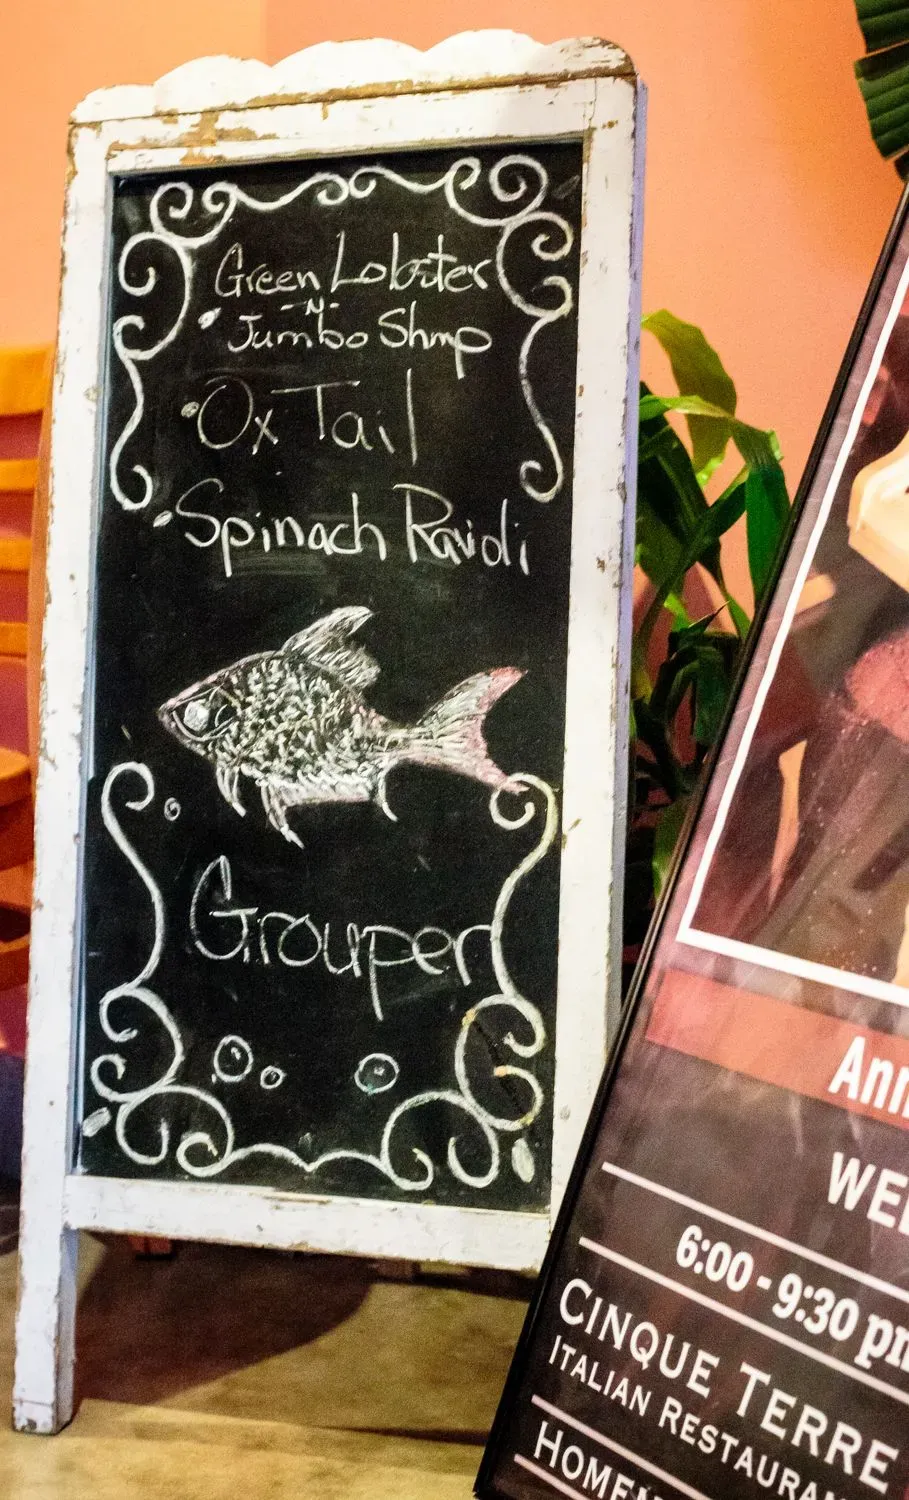 Green Lobster
-N-
Jumbo Shmp
Ox Tail
Spinach Ravioli
Grouper
Ann
WE
6:00 - 9:30 pm
CINQUE TERRE
ITALIAN RESTAURAN
HOMEM